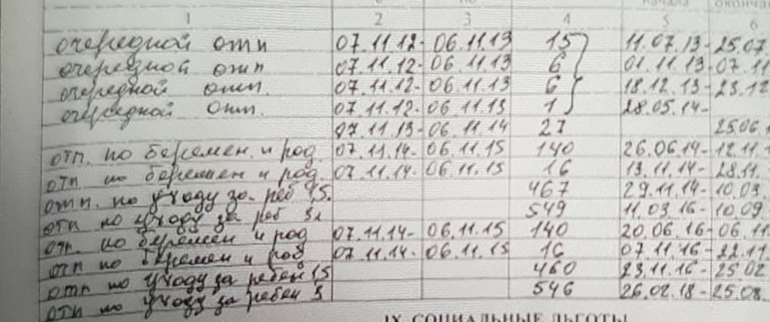 начала окончан
1 2 3 4 5 6
очередной отп 07.11.12- 06.11.13 15 11.07.13- 25.07.
очередной отп 07.11.12- 06.11.13 6 01.11.13- 07.11
очередной отп. 07.11.12- 06.11.13 6 18.12.13- 23.12
очередной отп. 07.11.12- 06.11.13 1 28.05.14-
07.11.13- 06.11.14 27 25.06.1
отп. по беремен. и род. 07.11.14- 06.11.15 140 26.06.14- 12.11.1
отп по беремен и род 07.11.14- 06.11.15 16 13.11.14- 28.11.
отп. по уходу за реб 1,5. 467 29.11.14- 10.03.
отп по уходу за реб 3л 549 11.03.16- 10.09
отп. по беремен и род 07.11.14- 06.11.15 140 20.06.16- 06.11
отп. по беремен и род 07.11.14- 06.11.15 16 07.11.16- 22.11
отп по уходу за ребен 1,5 460 23.11.16- 25.02
отп по уходу за ребен 3 546 26.02.18- 25.08.
IX. СОЦИАЛЬНЫЕ ЛЬГОТЫ